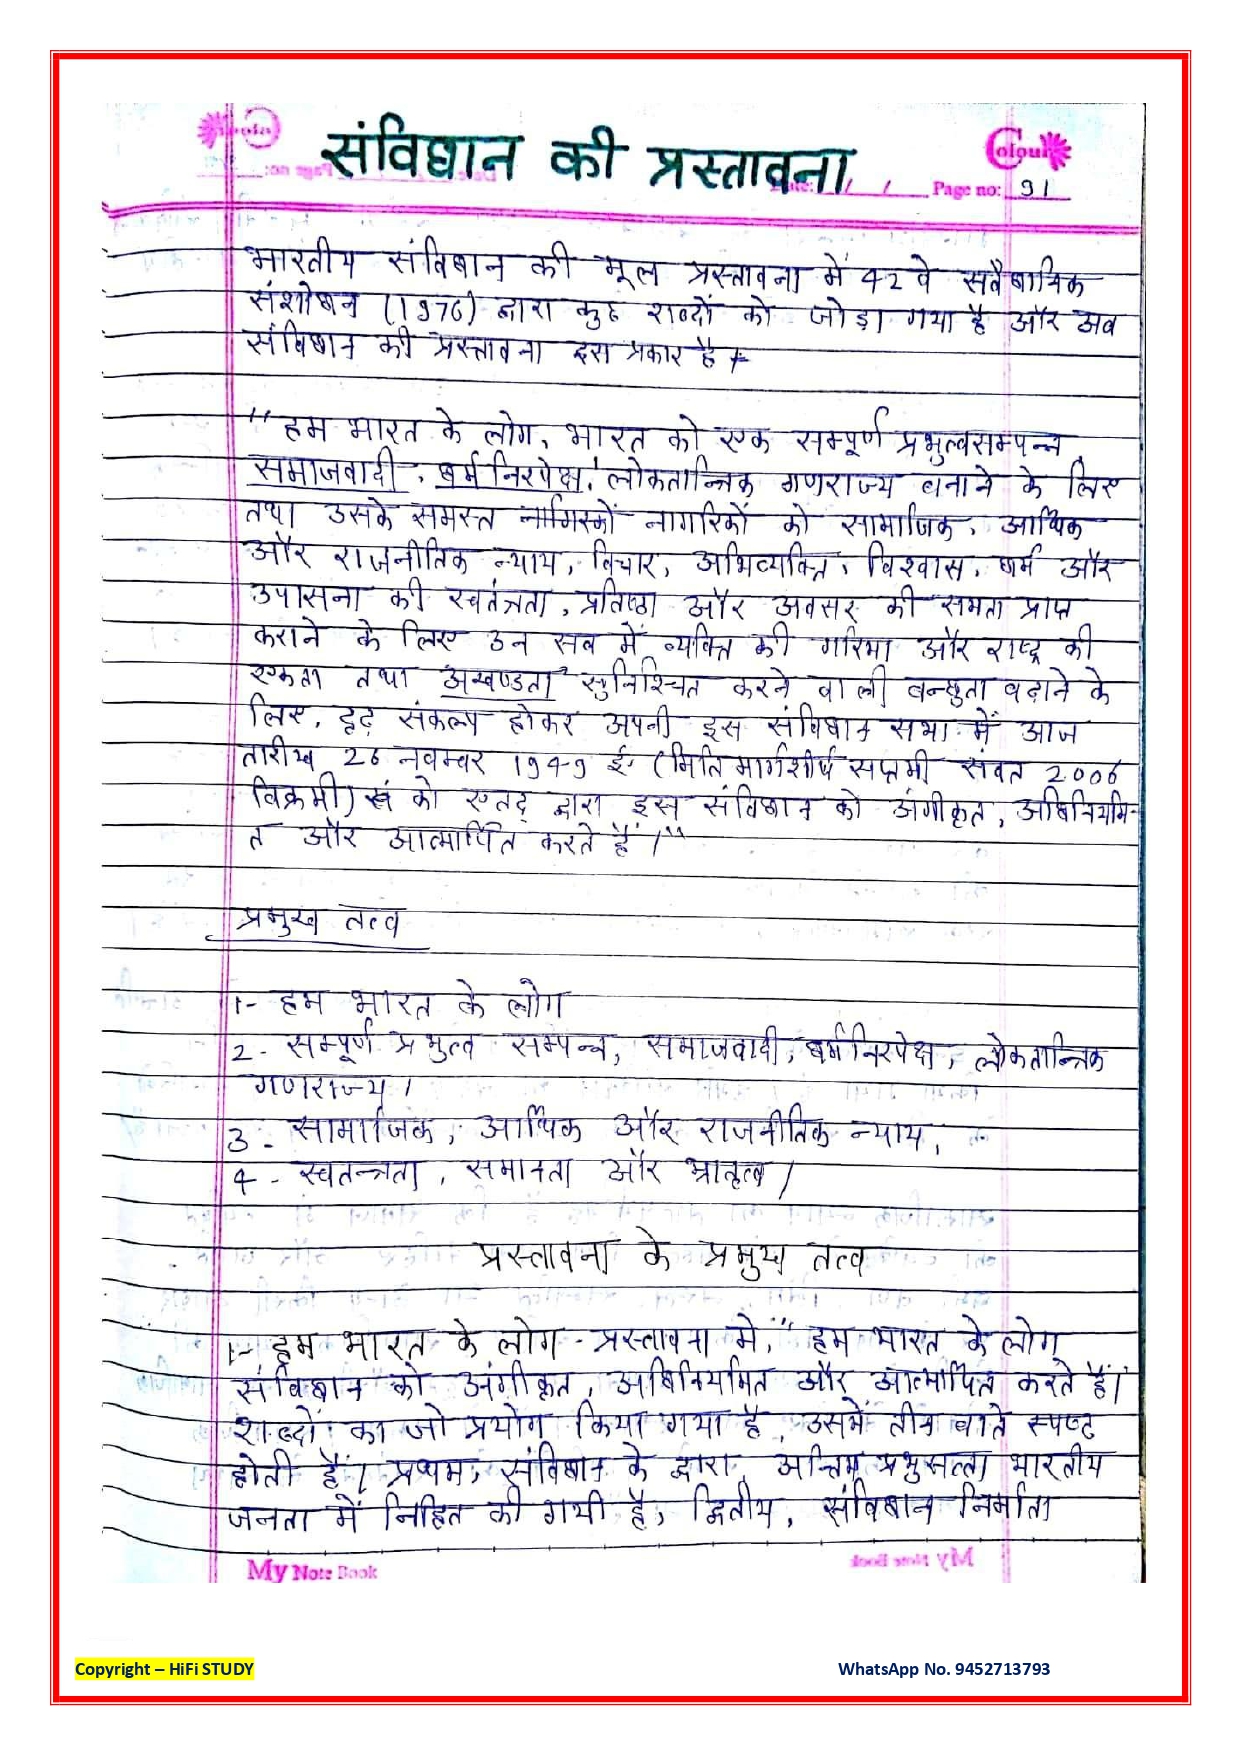 संविधान की प्रस्तावना
Colour
Page no: 91
भारतीय संविधान की मूल प्रस्तावना में 42 वे सवैधानिक
संशोधन (1976) द्वारा कुछ शब्दों को जोड़ा गया है और अब
संविधान की प्रस्तावना इस प्रकार है -
"हम भारत के लोग, भारत को एक सम्पूर्ण प्रभुत्वसम्पन्न,
समाजवादी, धर्मनिरपेक्ष, लोकतान्त्रिक गणराज्य बनाने के लिए
तथा उसके समस्त नागरिकों को सामाजिक, आर्थिक
और राजनीतिक न्याय, विचार, अभिव्यक्ति, विश्वास, धर्म और
उपासना की स्वतंत्रता, प्रतिष्ठा और अवसर की समता प्राप्त
कराने के लिए उन सब में व्यक्ति की गरिमा और राष्ट्र की
एकता तथा अखण्डता सुनिश्चित करने वाली बन्धुता बढ़ाने के
लिए, दृढ़ संकल्प होकर अपनी इस संविधान सभा में आज
तारीख 26 नवम्बर 1949 ई॰ (मिति मार्गशीर्ष सप्तमी संवत 2006
विक्रमी) को एतद् द्वारा इस संविधान को अंगीकृत, अधिनियमि-
त और आत्मार्पित करते हैं।"
प्रमुख तत्व
1- हम भारत के लोग
2- सम्पूर्ण प्रभुत्व सम्पन्न, समाजवादी, धर्मनिरपेक्ष, लोकतान्त्रिक
गणराज्य।
3- सामाजिक, आर्थिक और राजनीतिक न्याय,
4- स्वतन्त्रता, समानता और भ्रातृत्व।
प्रस्तावना के प्रमुख तत्व
1- हम भारत के लोग - प्रस्तावना मे, "हम भारत के लोग
संविधान को अंगीकृत, अधिनियमित और आत्मार्पित करते हैं।"
शब्दों का जो प्रयोग किया गया है, उसमें तीन बाते स्पष्ट
होती हैं। प्रथम, संविधान के द्वारा अन्तिम प्रभुसत्ता भारतीय
जनता में निहित की गयी है, द्वितीय, संविधान निर्माता
My Note Book
Copyright – HiFi STUDY
WhatsApp No. 9452713793